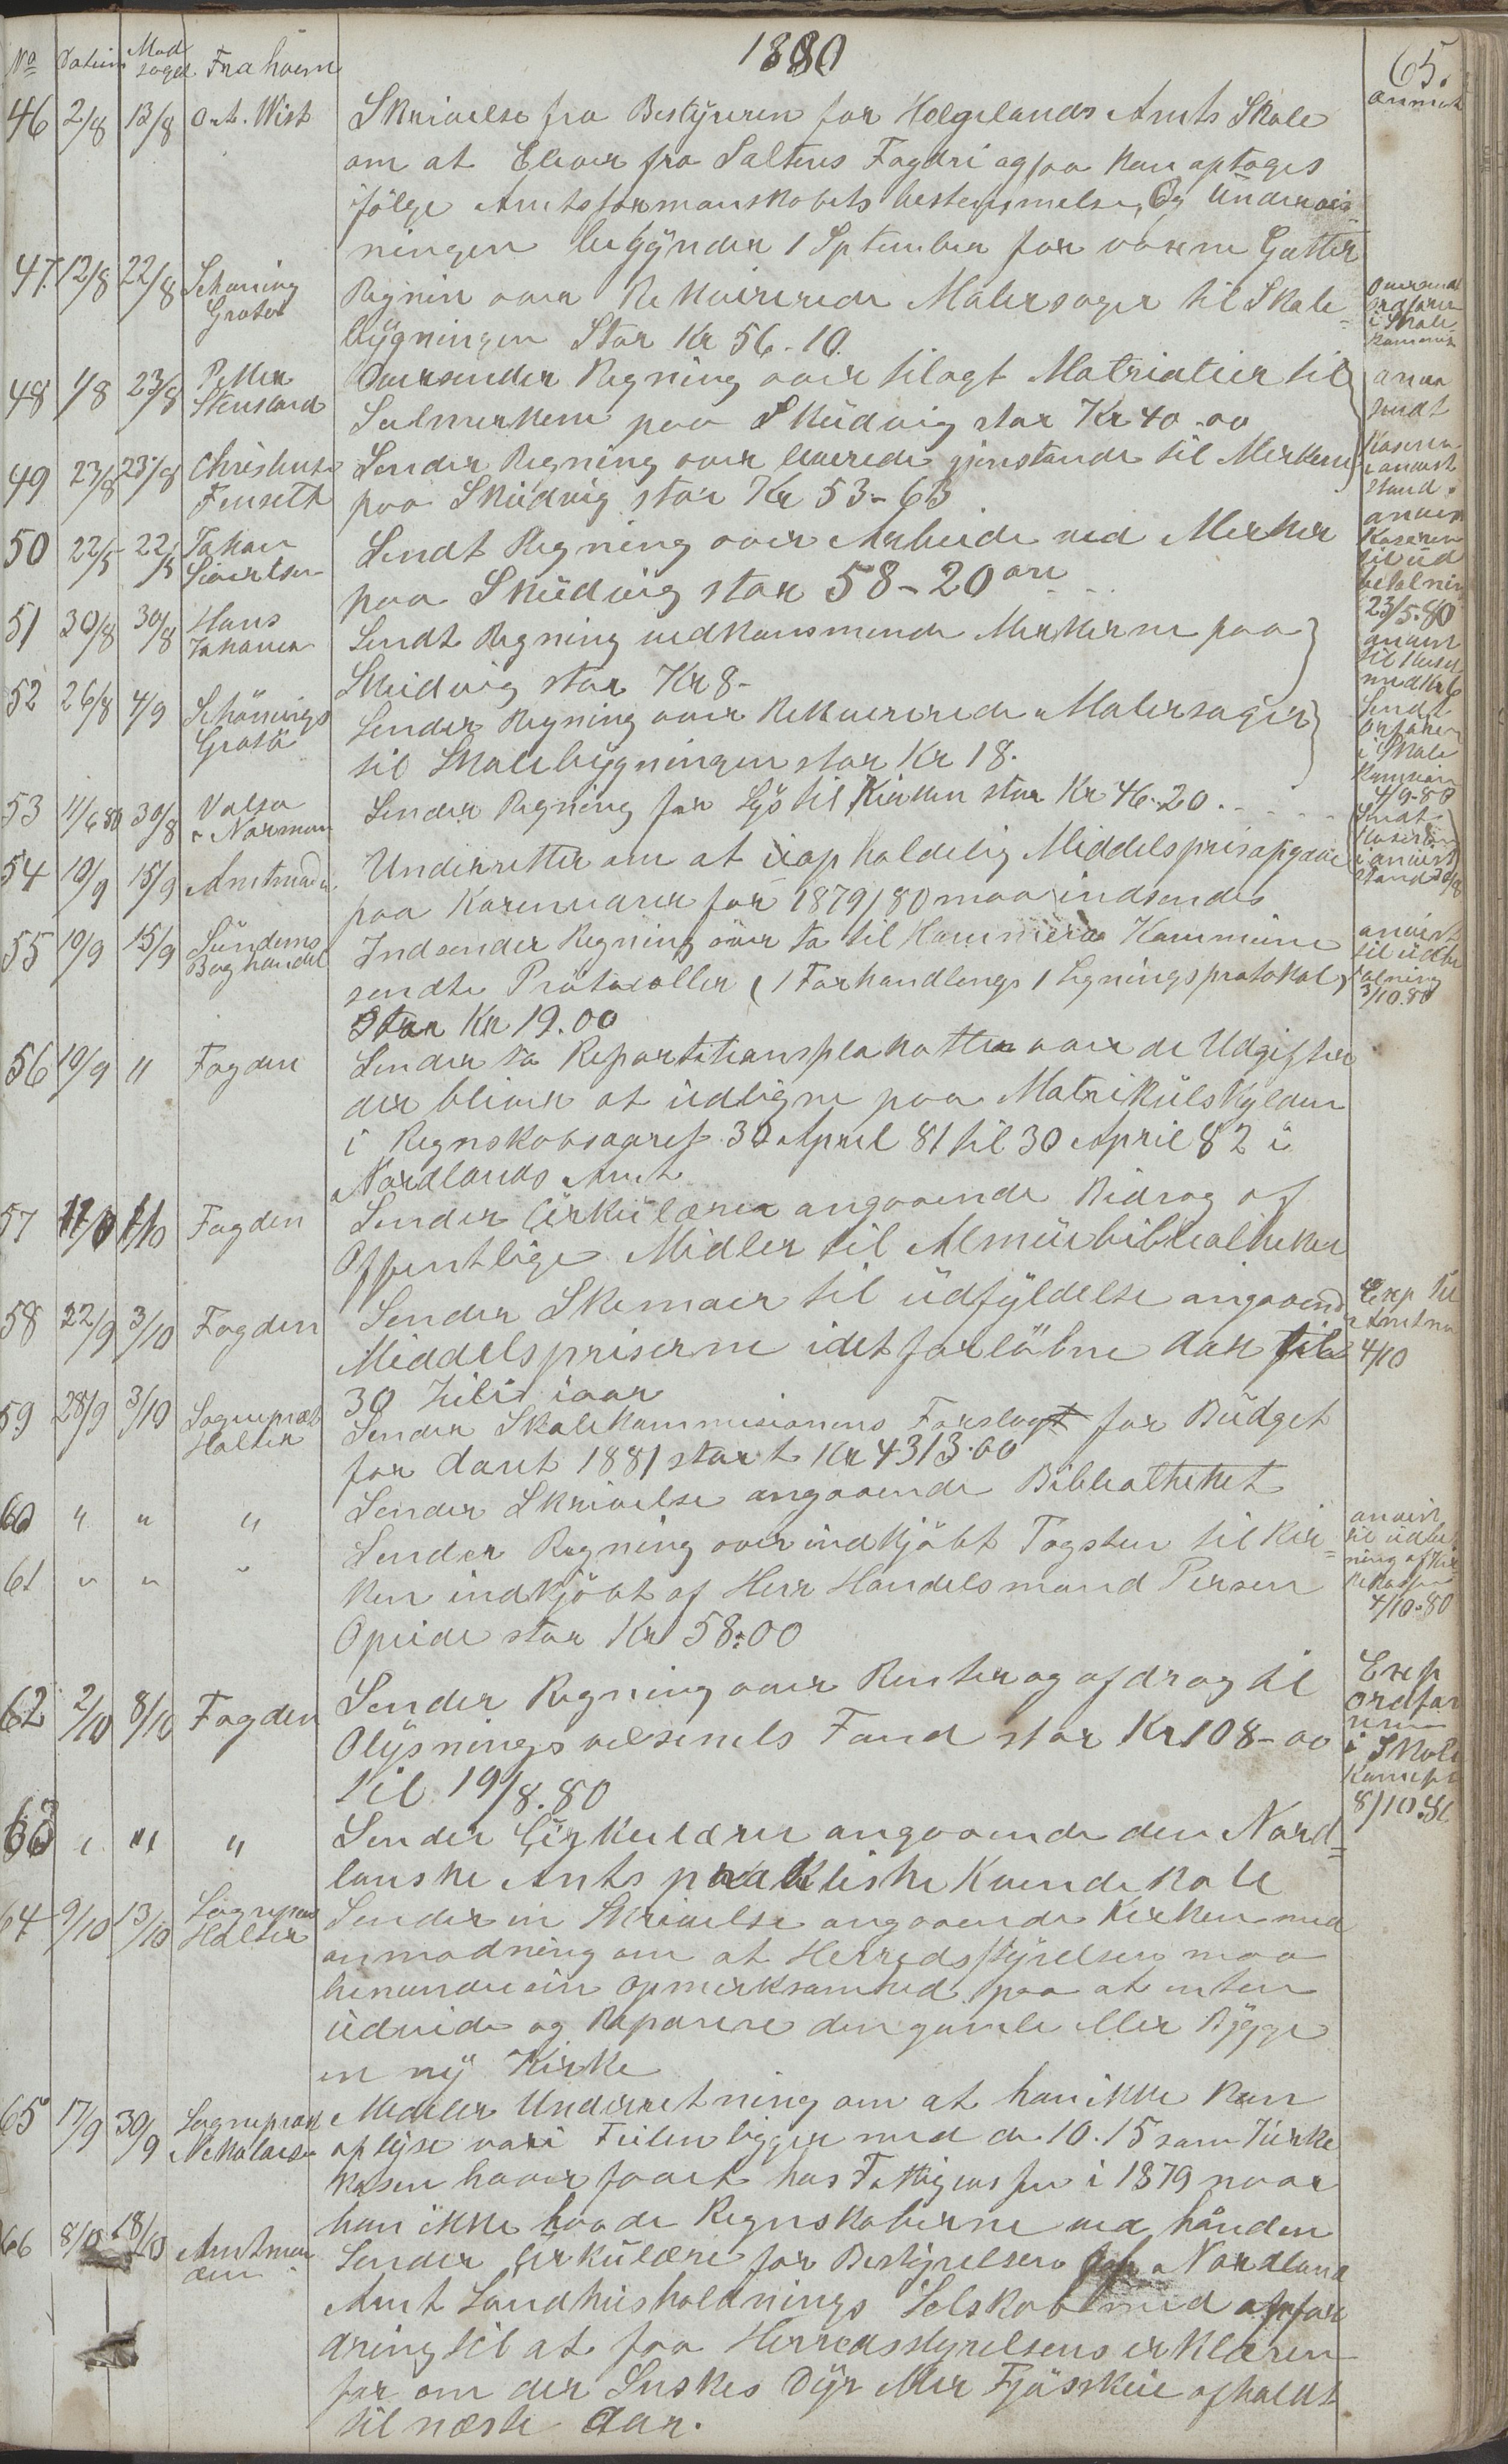 1880
65.
No Datum Mod taget. Fra hvem
anmerk
46 2/8 13/8 O. A. Wist Skrivelse fra Bestyreren for Helgelands Amts Skole
om at Elever fra Saltens Fogderi ogsaa kan optages
ifölge Amtsformanskabets bestemmelse, Og Undervis-
ningen begynder 1 Sptember for voxne Gutter
47. 12/8 22/8 Schøning Grøtø Regnin over Rekvirerede Malersager til Skole=
bygningen Stor Kr 56-10.
Oversendt Ordfører i Skole Kommis
48 1/8 23/8 Petter Stensland Oversender Regning over tilagt Matrialier til
Sulmerkene paa Skudvig stor Kr 40-00
anvist sendt
49 23/8 23/8 Christense Fenseth Sender Regning over leverede gjenstande til Merkene
paa Skudvig stor Kr 53-63
Kaseren i anvist stand.
50 22/5 22/5 Johan Sivertsen Sendt Regning over Arbeide ved Merker
paa Skudvig stor 58-20 öre
anvist Kaseren til ud betalning 23/5-80
51 30/8 30/8 Hans Johansen Sendt Regning vedkommende Merkerne paa
Skudvig stor Kr 8-
anvist til Kaser med Kr 6
52 26/8 4/9 Schönings Grøtö Sender Regning over Rekvirerede Malersager
til Skolebygningen stor Kr 18.
Sendt Ordfører i Skole Kommision 4/9-80
53 11/6 80 30/8 Valsø Norman Sender Regning for Lys til Kirken stor Kr 46.20.
Sendt Kaseren i anvist stand 30/8
54 10/9 15/9 Amtmanden Underretter om at uopholdelig Middelsprisopgave
paa Kornvarer for 1879/80 maa indsendes
55 10/9 15/9 Sündems Boghandel Indsender Regning över to til Kommuna Kommune
sendte Prötocoller (1 Forhandlings 1 Ligningsprotokol)
Stor Kr 19.00
anvist til udbetalning 3/10.80
56 10/9 " Fogden Sender to Repartitionsplakatter over de Udgifter
der bliver at udligne paa Matrikulskylden
i Regnskabsaaret 30 April 81 til 30 April 82 i
Nordlands Amt
57 Fogden Sender Cirkulærer angaaende Bidrag af
Offentlige Midler til Almuebibliotheker
58 22/9 3/10 Fogden Sender Skemaer til udfyldelse angaaende
Middelspriserne idet forløbne Aar til
30 Juli iaar
Exp til Amtma 4/10
59 28/9 3/10 Sogneprest Holter Sender Skolekommisionens Forslag for Budget
for Aaret 1881 stort Kr 4313.00
60 " " " Sender Skrivelse angaaende Bibliotheket
61 " " " Sender Regning over indkjöbt Tagsten til Kir=
ken indkjöbt af Herr Handelsmand Persen
Opeide stor Kr 58:00
anvist til udbetning af Kirkekassen 4/10-80
62 2/10 8/10 Fogden Sender Regning over Renter og afdrag til
Olysningsvesenets Fond stor Kr 108-00
til 19/8.80
Exp ordføreren i Skole Komis 8/10.80
63 " " " Sender Cirkulærer angaaende den Nord=
lanske Amts praktiske Kvindeskole
64 9/10 13/10 Sogneprest Holter Sender en Skrivelse angaaende Kirken med
anmodning om at Herredsstyrelsen maa
henvende sin Opmerksamhed paa at enten
udvide og Reparere den gamle eller Bygge
en ny Kirke
65 17/9 30/9 Sogneprest Nikolaisen Medeler Underretning om at han ikke kan
oplyse vori Feilen ligger med de 10.15 som Kirke
kasen haver faaet hos Fattigvesen i 1879 naar
han ikke havde Regnskaberne ved hånden
66 8/10 18/10 Amtman den Sender Cirkulære for Bestyrelsen af Nordland
Amt Landhusholdnings Selskab med opfor
dring til at faa Herredsstyrelsens erklæren
for om der Snskes Dyr eller Fjösskue afholdt
til næste Aar.